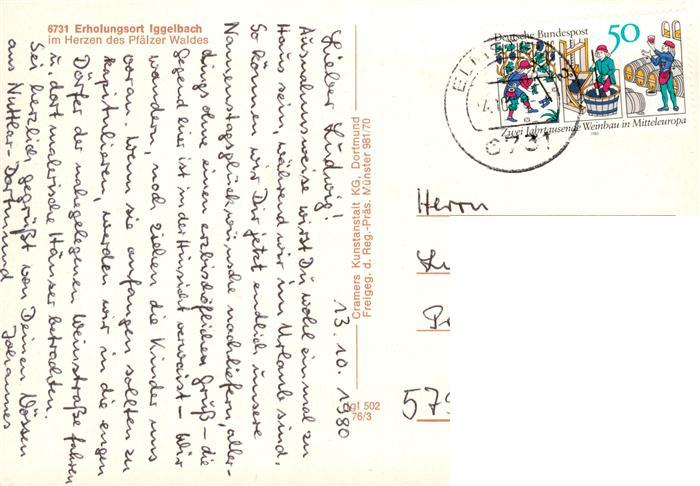 6731 Erholungsort Iggelbach
im Herzen des Pfälzer Waldes
13. 10. 1980
Lieber Ludwig!
Ausnahmsweise wirst Du wohl einmal zu
Haus sein, während wir im Urlaub sind.
So können wir Dir jetzt endlich unsere
Namenstagsglückwünsche nachliefern, aller-
dings ohne einen erzbischöflichen Gruß - die
Gegend hier ist in der Hinsicht verwaist - Wir
wandern, noch ziehen die Kinder uns
voran. Wenn sie anfangen sollten zu
kapitulieren, werden wir in die engen
Dörfer der nahegelegenen Weinstraße fahren
u. dort malerische Häuser betrachten.
Sei herzlich gegrüßt von Deinen
aus Nuttlar-Dortmund Johannes
Cramers Kunstanstalt KG, Dortmund
Freigeg. d. Reg.-Präs. Münster 981/70
gl 502
76/3
Deutsche Bundespost 50
Zwei Jahrtausende Weinbau in Mitteleuropa
1980
6731
Herrn
579